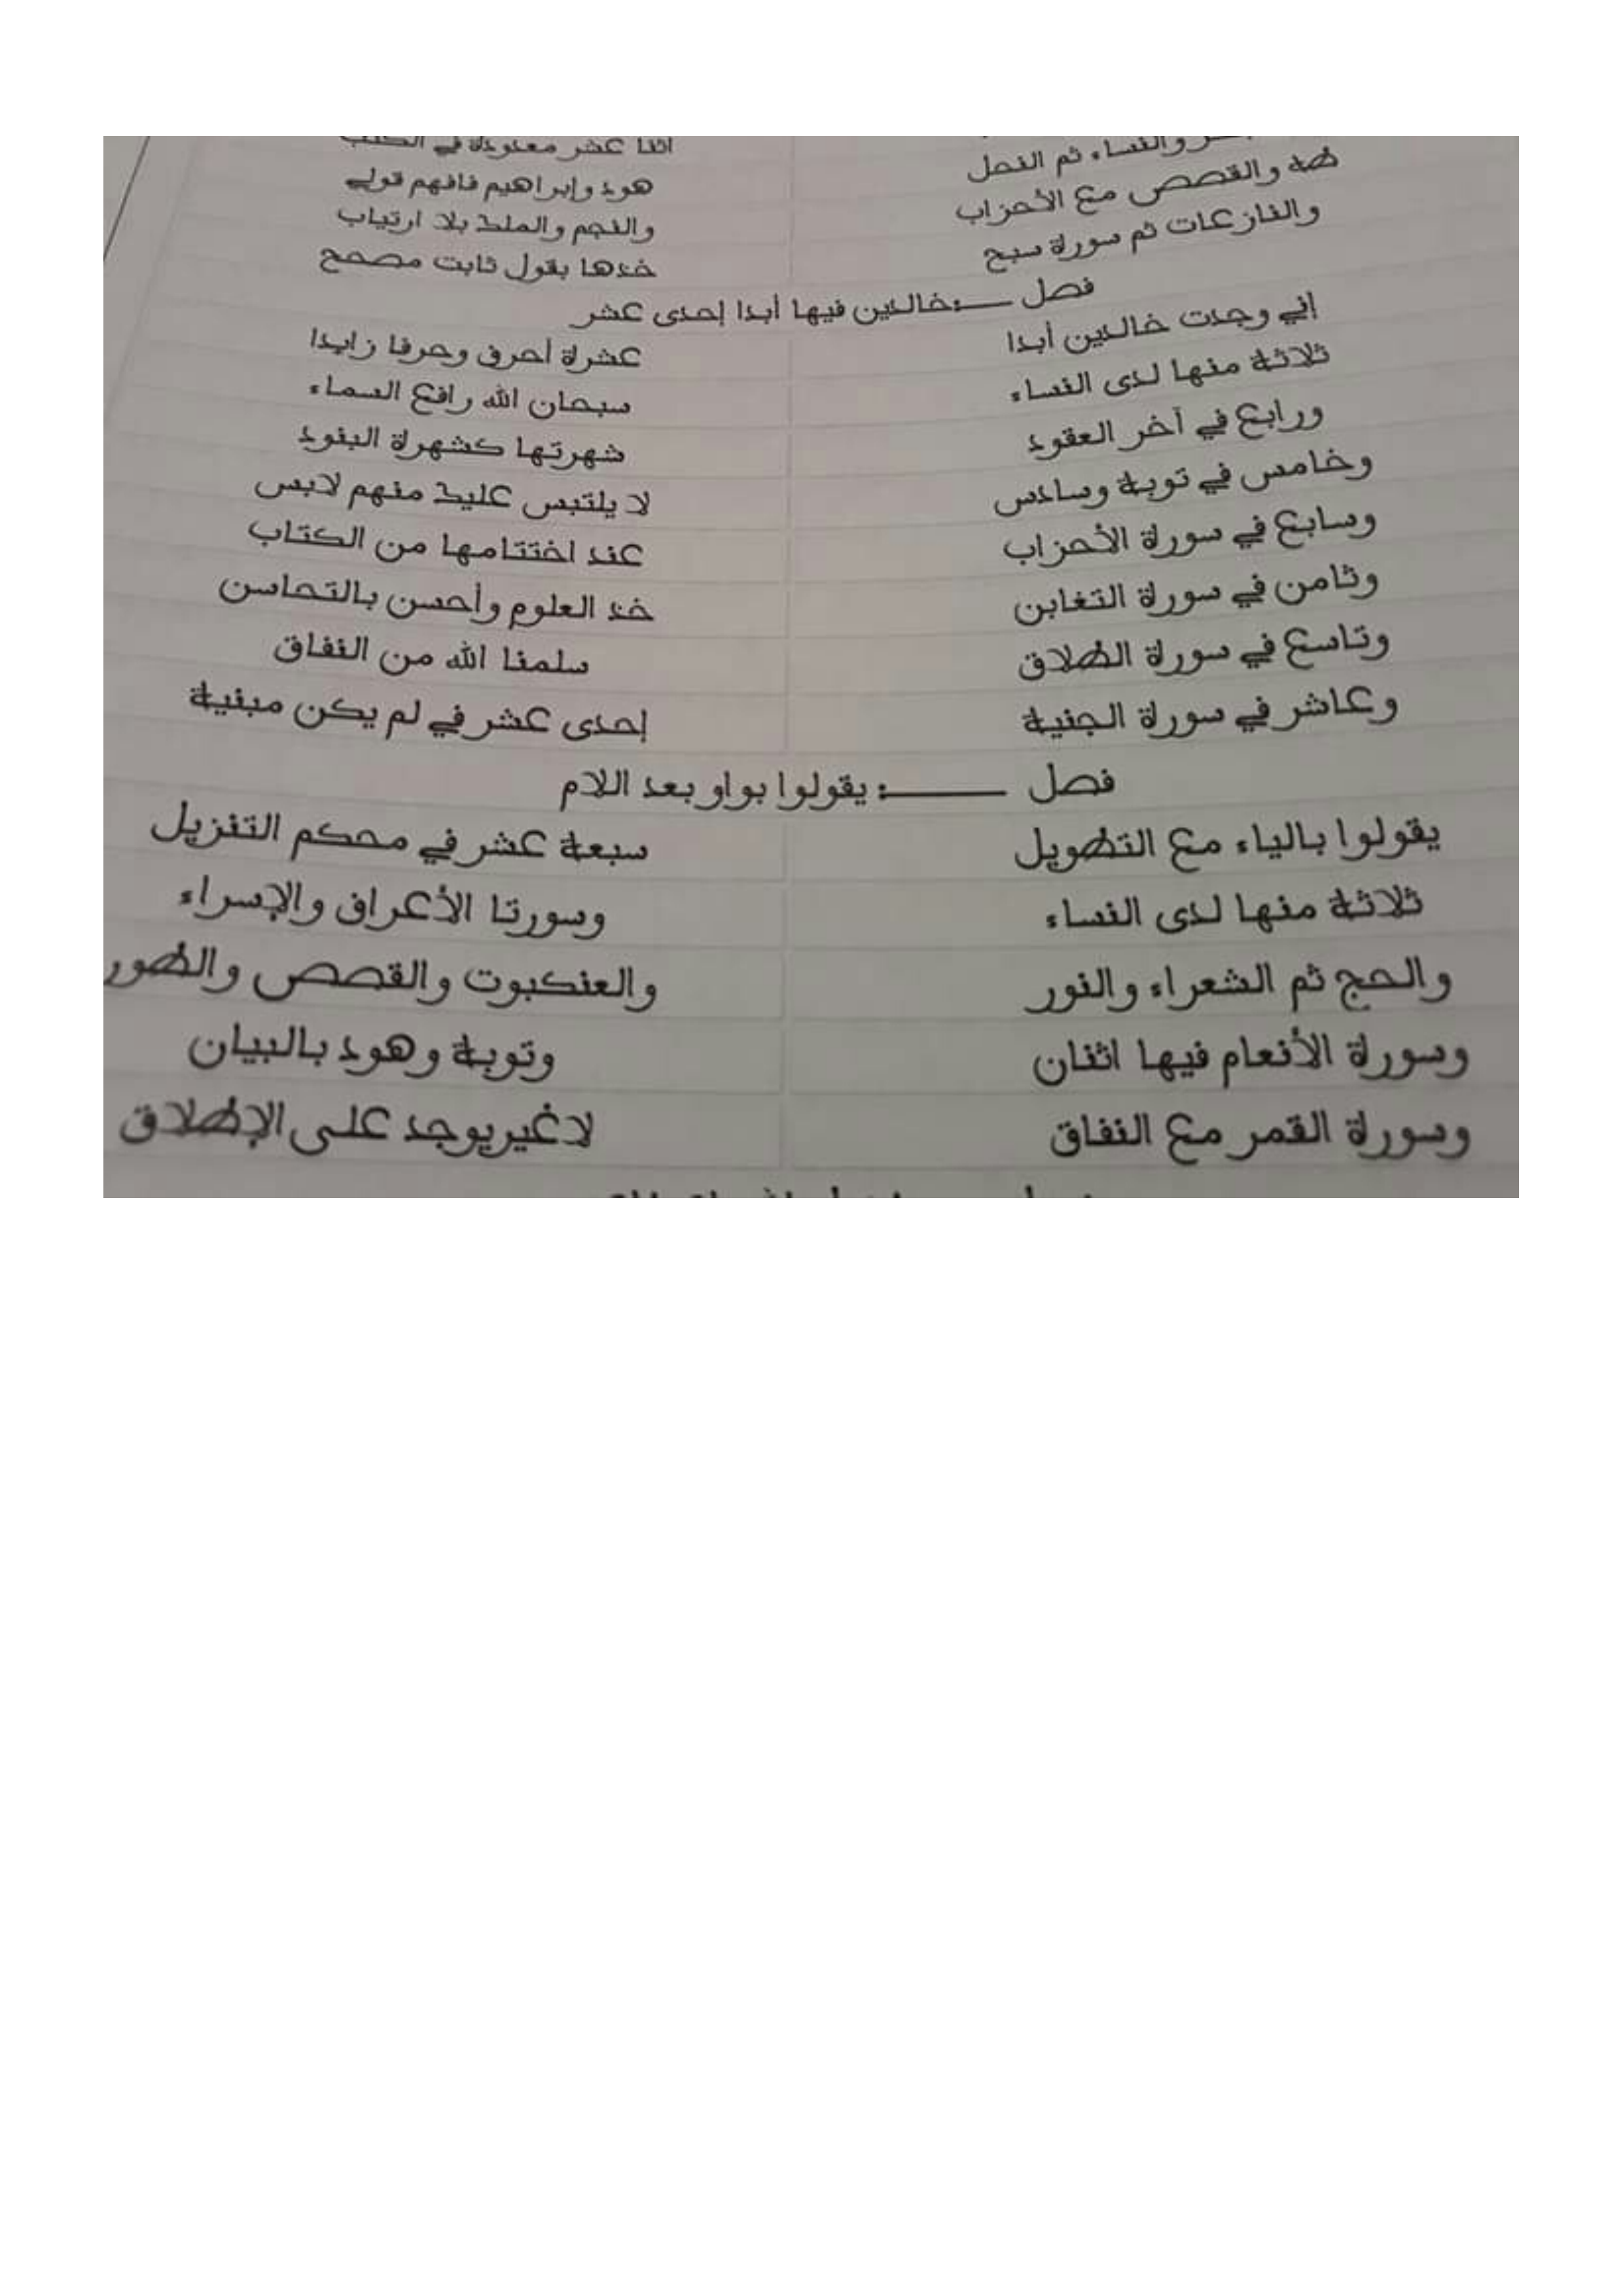 والنساء ثم النحل اثنا عشر معدودة في
طه والقصص مع الأحزاب هود وإبراهيم فافهم قولي
والنازعات ثم سورة سبح والنجم والملك بلا ارتياب
خذها بقول ثابت مصحح
فصل ـــــ: خالدين فيها أبدا إحدى عشر
إني وجدت خالدين أبدا عشرة أحرف وحرفا زايدا
ثلاثة منها لدى النساء سبحان الله رافع السماء
ورابع في آخر العقود شهرتها كشهرة البنود
وخامس في توبة وسادس لا يلتبس عليك منهم لابس
وسابع في سورة الأحزاب عند اختتامها من الكتاب
وثامن في سورة التغابن خذ العلوم وأحسن بالتحاسن
وتاسع في سورة الطلاق سلمنا الله من النفاق
وعاشر في سورة الجنية إحدى عشر في لم يكن مبنية
فصل ـــــ: يقولوا بواو بعد اللام
يقولوا بالياء مع التطويل سبعة عشر في محكم التنزيل
ثلاثة منها لدى النساء وسورتا الأعراف والإسراء
والحج ثم الشعراء والنور والعنكبوت والقصص والطور
وسورة الأنعام فيها اثنان وتوبة وهود بالبيان
وسورة القمر مع النفاق لا غير يوجد على الإطلاق